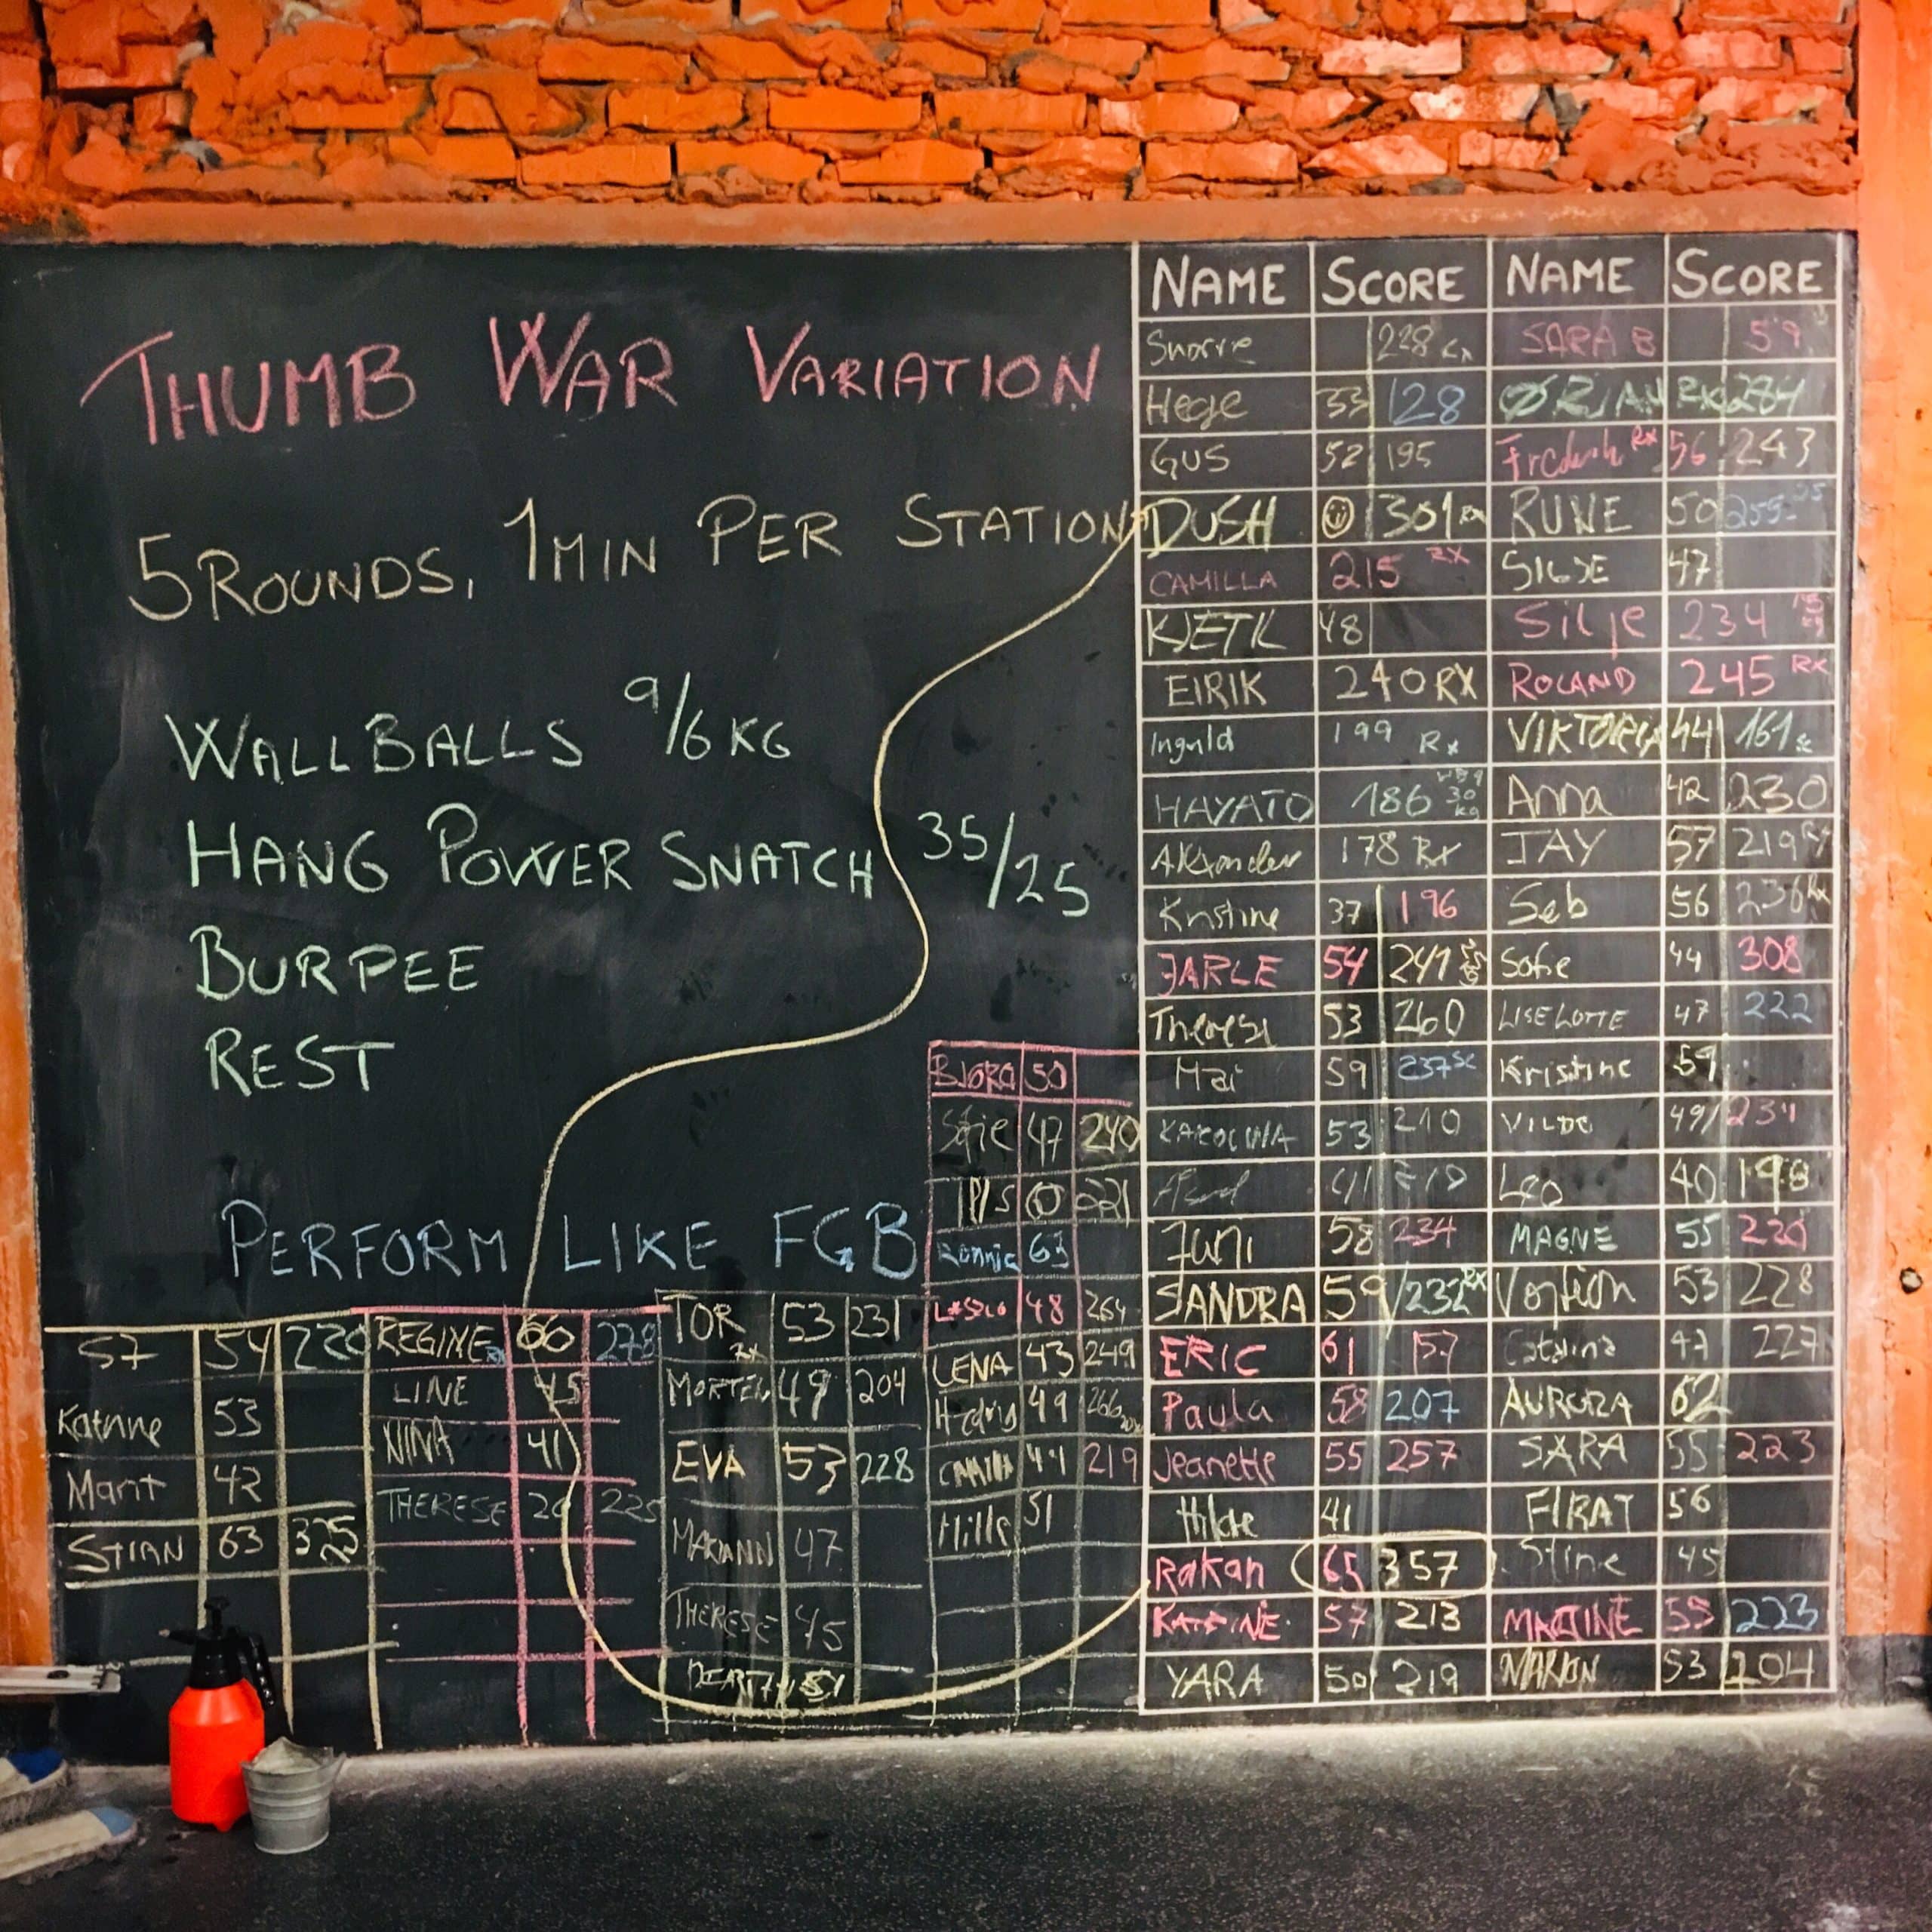 THUMB WAR VARIATION
5 ROUNDS, 1 MIN PER STATION
WALL BALLS 9/6 KG
HANG POWER SNATCH 35/25
BURPEE
REST
PERFORM LIKE FGB
S7 54 220
Katrine 53
Marit 42
STIAN 63 325
REGINE RX 60 278
LINE 45
NINA 41
THERESE 225
TOR RX 53 231
MORTEN 49 204
EVA 53 228
MARIANN 47
THERESE 45
50
Sofie 47 240
221
Ronnie 63
48 264
LENA 43 249
49 266
44 219
Mille 51
NAME SCORE NAME SCORE
Snorre 228 SARA B 59
Hege 33 128 ØRJAN RX 284
GUS 52 195 Fredrik RX 56 243
DUSH 301 RX RUNE 50 255
CAMILLA 215 RX SILJE 47
KJETIL 48 Silje 234 15 kg
EIRIK 240 RX ROLAND 245 RX
199 Rx VIKTORIA 44 161 sc
HAYATO 186 30 kg Anna 42 230
Alexander 178 RX JAY 57 219 RX
Kristine 37 196 Seb 56 236 Rx
JARLE 54 241 Sofie 44 308
Therese 53 260 LISELOTTE 47 222
Mai 59 237 SC Kristine 59
KAROLINA 53 210 VILDE 49 231
41 Leo 40 198
Juni 58 234 MAGNE 55 220
SANDRA 59 232 RX 53 228
ERIC 61 157 Catalina 47 227
Paula 58 207 AURORA 62
Jeanette 55 257 SARA 55 223
Hilde 41 FIRAT 56
Rakan 65 357 Stine 45
KATRINE 57 213 MARTINE 55 223
YARA 50 219 MARION 53 204